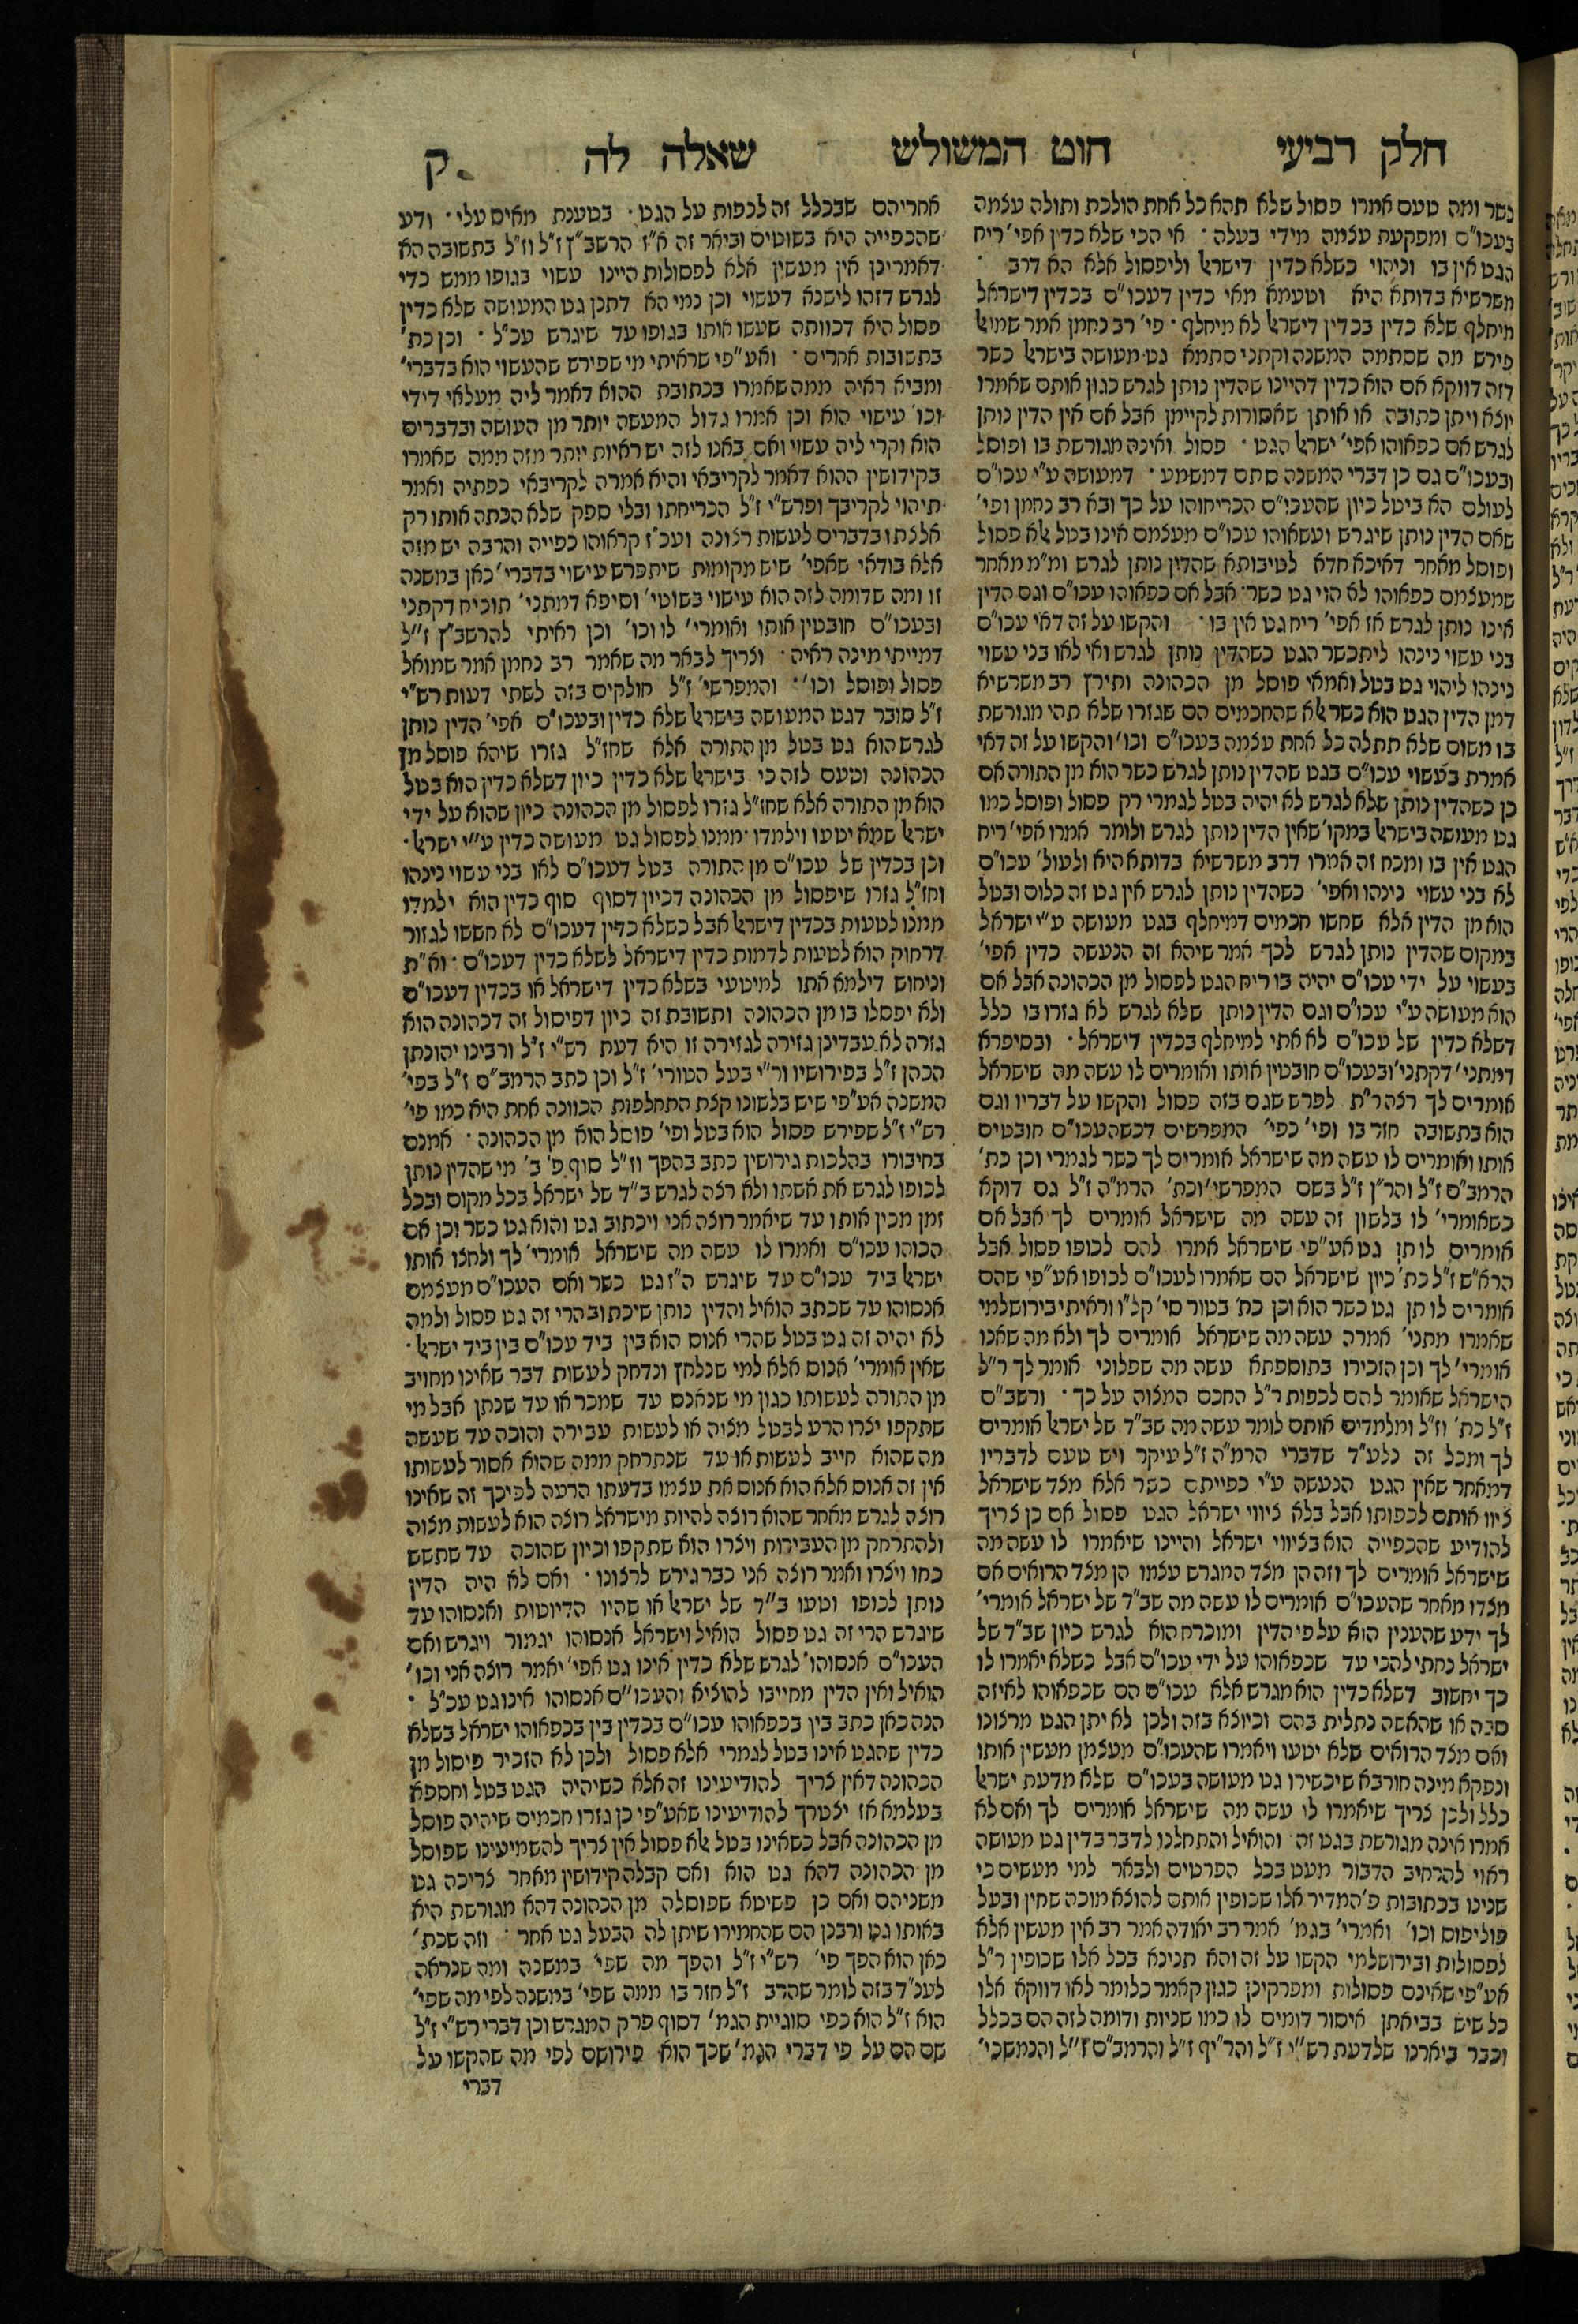 חלק רביעי חוט המשולש שאלה לה ק
כשר ומה טעם אמרו פסול שלא תהא כל אחת הולכת ותולה עצמה
בעכו"ם ומפקעת עצמה מידי בעלה · אי הכי שלא כדין אפי' ריח
הגט אין בו וניהוי כשלא כדין דישראל וליפסול אלא הא דרב
משרשיא בדותא היא וטעמא מאי כדין דעכו"ם בכדין דישראל
מיחלף שלא כדין בכדין דישראל לא מיחלף · פי' רב נחמן אמר שמואל
פירש מה שסתמה המשנה וקתני סתמא גט מעושה בישראל כשר
דזה דווקא אם הוא כדין דהיינו שהדין נותן לגרש כגון אותם שאמרו
יוצא ויתן כתובה או אותן שאסורות לקיימן אבל אם אין הדין נותן
לגרש אם כפאוהו אפי' ישראל הגט · פסול ואינה מגורשת בו ופוסל
ובעכו"ם גם כן דברי המשנה סתם דמשמע · דמעושה ע"י עכו"ם
לעולם הא ביטל כיון שהעכו"ם הכריחוהו על כך ובא רב נחמן ופי'
שאם הדין נותן שיגרש ועשאוהו עכו"ם מעצמם אינו בטל אלא פסול
ופוסל מאחר דאיכא חדא לטיבותא שהדין נותן לגרש ומ"מ מאחר
שמעצמם כפאוהו לא הוי גט כשר · אבל אם כפאוהו עכו"ם וגם הדין
אינו נותן לגרש אז אפי' ריח גט אין בו · והקשו על זה דאי עכו"ם
בני עשוי נינהו ליתכשר הגט כשהדין נותן לגרש ואי לאו בני עשוי
נינהו ליהוי גט בטל ואמאי פוסל מן הכהונה ותירץ רב משרשיא
דמן הדין הגט הוא כשר אלא שהחכמים הם שגזרו שלא תהי מגורשת
בו משום שלא תתלה כל אחת עצמה בעכו"ם וכו' והקשו על זה דאי
אמרת בעשוי עכו"ם בגט שהדין נותן לגרש כשר הוא מן התורה אם
כן כשהדין נותן שלא לגרש לא יהיה בטל לגמרי רק פסול ופוסל כמו
גט מעושה בישראל במקו' שאין הדין נותן לגרש ולומר אמרו אפי' ריח
הגט אין בו ומכח זה אמרו דרב משרשיא בדותא היא ולעול' עכו"ם
לא בני עשוי נינהו ואפי' כשהדין נותן לגרש אין גט זה כלום ובטל
הוא מן הדין אלא שחשו חכמים דמיחלף בגט מעושה ע"י ישראל
במקום שהדין נותן לגרש לכך אמר שיהא זה הנעשה כדין אפי'
בעשוי על ידי עכו"ם יהיה בו ריח הגט לפסול מן הכהונה אבל אם
הוא מעושה ע"י עכו"ם וגם הדין נותן שלא לגרש לא גזרו בו כלל
דשלא כדין של עכו"ם לא אתי למיחלף בכדין דישראל · ובסיפרא
דמתני' דקתני' ובעכו"ם חובטין אותו ואומרים לו עשה מה שישראל
אומרים לך רצה ר"ת לפרש שגם בזה פסול והקשו על דבריו וגם
הוא בתשובה חזר בו ופי' כפי' המפרשים דכשהעכו"ם חובטים
אותו ואומרים לו עשה מה שישראל אומרים לך כשר לגמרי וכן כת'
הרמב"ם ז"ל והר"ן ז"ל בשם המפרשי' וכת' הרמ"ה ז"ל גם דוקא
כשאומרי' לו בלשון זה עשה מה שישראל אומרים לך אבל אם
אומרים לו תן גט אע"פי שישראל אמרו להם לכופו פסול אבל
הרא"ש ז"ל כת' כיון שישראל הם שאמרו לעכו"ם לכופו אע"פי שהם
אומרים לו תן גט כשר הוא וכן כת' בטור סי' קל"ו וראיתי בירושלמי
שאמרו מתני' אמרה עשה מה שישראל אומרים לך ולא מה שאנו
אומרי' לך וכן הזכירו בתוספתא עשה מה שפלוני אומר לך ר"ל
הישראל שאומר להם לכפות ר"ל החכם המצוה על כך · ורשב"ם
ז"ל כת' וז"ל ומלמדים אותם לומר עשה מה שב"ד של ישראל אומרים
לך ומכל זה נלע"ד שדברי הרמ"ה ז"ל עיקר ויש טעם לדבריו
דמאחר שאין הגט הנעשה ע"י כפייתם כשר אלא מצד שישראל
ציוו אותם לכפותו אבל בלא ציווי ישראל הגט פסול אם כן צריך
להודיע שהכפייה הוא בציווי ישראל והיינו שיאמרו לו עשה מה
שישראל אומרים לך וזה הן מצד המגרש עצמו הן מצד הרואים אם
מצדו מאחר שהעכו"ם אומרים לו עשה מה שב"ד של ישראל אומרי'
לך ידע שהענין הוא על פי הדין ומוכרח הוא לגרש כיון שב"ד של
ישראל נחתי להכי עד שכפאוהו על ידי עכו"ם אבל כשלא יאמרו לו
כך יחשוב דשלא כדין הוא מגרש אלא עכו"ם הם שכפאוהו לאיזה
סבה או שהאשה נתלית בהם וכיוצא בזה ולכן לא יתן הגט מרצונו
ואם מצד הרואים שלא יטעו ויאמרו שהעכו"ם מעצמן מעשין אותו
ונפקא מינה חורבא שיכשירו גט מעושה בעכו"ם שלא מדעת ישראל
כלל ולכן צריך שיאמרו לו עשה מה שישראל אומרים לך ואם לא
אמרו אינה מגורשת בגט זה · והואיל והתחלנו לדבר בדין גט מעושה
ראוי להרחיב הדבור מעט בכל הפרטים ולבאר למי מעשים כי
שנינו בכתובות פ' המדיר אלו שכופין אותם להוציא מוכה שחין ובעל
פוליפוס וכו' ואמרי' בגמ' אמר רב יאודה אמר רב אין מעשין אלא
לפסולות ובירושלמי הקשו על זה והא תנינא בכל אלו שכופין ר"ל
אע"פי שאינם פסולות ומפרקינן כגון קאמר כלומר לאו דווקא אלו
כל שיש בביאתן איסור דומים לו כמו שניות ודומה לזה הם בכלל
וכבר ביארנו שלדעת רש"י ז"ל והר"יף ז"ל והרמב"ם ז"ל והנמשכי'
אחריהם שבכלל זה לכפות על הגט · בטענת מאיס עלי · ודע
שהכפייה היא בשוטים וביאר זה א"ז הרשב"ץ ז"ל וז"ל בתשובה הא
דאמרינן אין מעשין אלא לפסולות היינו עשוי בגופו ממש כדי
לגרש דזהו לישנא דעשוי וכן נמי הא דתנן גט המעושה שלא כדין
פסול היא דכוותה שעשו אותו בגופו עד שיגרש עכ"ל · וכן כת'
בתשובות אחרים · ואע"פי שראיתי מי שפירש שהעשוי הוא בדברי'
ומביא ראיה ממה שאמרו בכתובת ההוא דאמר ליה מעלאי דידי
וכו' עישוי הוא וכן אמרו גדול המעשה יותר מן העושה ובדברים
הוא וקרי ליה עשוי ואם באנו לזה יש ראיות יותר מזה ממה שאמרו
בקידושין ההוא דאמר לקריבאי והיא אמרה לקריבאי כפתיה ואמר
תיהוי לקריבך ופרש"י ז"ל הכריחתו ובלי ספק שלא הכתה אותו רק
אלצתו בדברים לעשות רצונה ועכ"ז קראוהו כפייה והרבה יש מזה
אלא בודאי שאפי' שיש מקומות שיתפרש עישוי בדברי' כאן במשנה
זו ומה שדומה לזה הוא עישוי בשוטי' וסיפא דמתני' תוכיח דקתני
ובעכו"ם חובטין אותו ואומרי' לו וכו' וכן ראיתי להרשב"ץ ז"ל
דמייתי מינה ראיה · וצריך לבאר מה שאמר רב נחמן אמר שמואל
פסול ופוסל וכו' · והמפרשי' ז"ל חולקים בזה לשתי דעות רש"י
ז"ל סובר דגט המעושה בישראל שלא כדין ובעכו"ם אפי' הדין נותן
לגרש הוא גט בטל מן התורה אלא שחז"ל גזרו שיהא פוסל מן
הכהונה וטעם לזה כי בישראל שלא כדין כיון דשלא כדין הוא בטל
הוא מן התורה אלא שחז"ל גזרו לפסול מן הכהונה כיון שהוא על ידי
ישראל שמא יטעו וילמדו ממנו לפסול גט מעושה כדין ע"י ישראל ·
וכן בכדין של עכו"ם מן התורה בטל דעכו"ם לאו בני עשוי נינהו
וחז"ל גזרו שיפסול מן הכהונה דכיון דסוף סוף כדין הוא ילמדו
ממנו לטעות בכדין דישראל אבל כשלא כדין דעכו"ם לא חששו לגזור
דרחוק הוא לטעות לדמות כדין דישראל לשלא כדין דעכו"ם · וא"ת
וניחוש דילמא אתו למיטעי בשלא כדין דישראל או בכדין דעכו"ם
ולא יפסלו בו מן הכהונה ותשובת זה כיון דפיסול זה דכהונה הוא
גזרה לא עבדינן גזירה לגזירה זו היא דעת רש"י ז"ל ורבינו יהונתן
הכהן ז"ל בפירושיו ור"י בעל הטורי' ז"ל וכן כתב הרמב"ם ז"ל בפי'
המשנה אע"פי שיש בלשונו קצת התחלפות הכוונה אחת היא כמו פי'
רש"י ז"ל שפירש פסול הוא בטל ופי' פוסל הוא מן הכהונה · אמנם
בחיבורו בהלכות גירושין כתב בהפך וז"ל סוף פ' ב' מי שהדין נותן
לכופו לגרש את אשתו ולא רצה לגרש ב"ד של ישראל בכל מקום ובכל
זמן מכין אותו עד שיאמר רוצה אני ויכתוב גט והוא גט כשר וכן אם
הכוהו עכו"ם ואמרו לו עשה מה שישראל אומרי' לך ולחצו אותו
ישראל ביד עכו"ם עד שיגרש ה"ז גט כשר ואם העכו"ם מעצמם
אנסוהו עד שכתב הואיל והדין נותן שיכתוב הרי זה גט פסול ולמה
לא יהיה זה גט בטל שהרי אנוס הוא בין ביד עכו"ם בין ביד ישראל ·
שאין אומרי' אנוס אלא למי שנלחץ ונדחק לעשות דבר שאינו מחויב
מן התורה לעשותו כגון מי שנאנס עד שמכר או עד שנתן אבל מי
שתקפו יצרו הרע לבטל מצוה או לעשות עבירה והוכה עד שעשה
מה שהוא חייב לעשות או עד שנתרחק ממה שהוא אסור לעשותו
אין זה אנוס אלא הוא אנוס את עצמו בדעתו הרעה לפיכך זה שאינו
רוצה לגרש מאחר שהוא רוצה להיות מישראל רוצה הוא לעשות מצוה
ולהתרחק מן העבירות ויצרו הוא שתקפו וכיון שהוכה עד שתשש
כחו ויצרו ואמר רוצה אני כבר גירש לרצונו · ואם לא היה הדין
נותן לכופו וטעו ב"ד של ישראל או שהיו הדיוטות ואנסוהו עד
שיגרש הרי זה גט פסול הואיל וישראל אנסוהו יגמור ויגרש ואם
העכו"ם אנסוהו לגרש שלא כדין אינו גט אפי' יאמר רוצה אני וכו'
הואיל ואין הדין מחייבו להוציא והעכו"ם אנסוהו אינו גט עכ"ל ·
הנה כאן כתב בין בכפאוהו עכו"ם בכדין בין בכפאוהו ישראל בשלא
כדין שהגט אינו בטל לגמרי אלא פסול ולכן לא הזכיר פיסול מן
הכהונה דאין צריך להודיעינו זה אלא כשיהיה הגט בטל וחספא
בעלמא אז יצטרך להודיעינו שאע"פי כן גזרו חכמים שיהיה פוסל
מן הכהונה אבל כשאינו בטל אלא פסול אין צריך להשמיעינו שפוסל
מן הכהונה דהא גט הוא ואם קבלה קידושין מאחר צריכה גט
משניהם ואם כן פשיטא שפוסלה מן הכהונה דהא מגורשת היא
באותו גט ורבנן הם שהחמירו שיתן לה הבעל גט אחר · וזה שכת'
כאן הוא הפך פי' רש"י ז"ל והפך מה שפי' במשנה ומה שנראה
לענ"ד בזה לומר שהרב ז"ל חזר בו ממה שפי' במשנה לפי מה שפי'
הוא ז"ל הוא כפי סוגיית הגמ' דסוף פרק המגרש וכן דברי רש"י ז"ל
שם הם על פי דברי הגמ' שכך הוא פירושם לפי מה שהקשו על
דברי